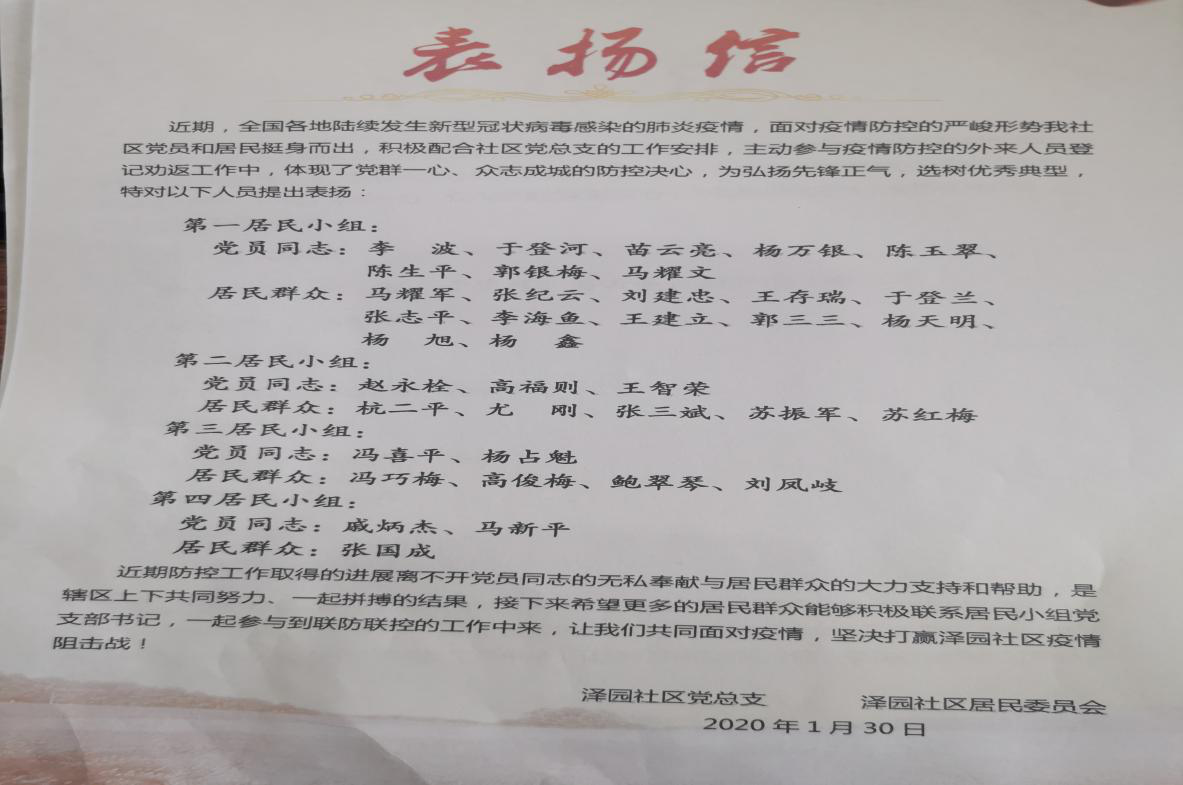 表扬信
近期，全国各地陆续发生新型冠状病毒感染的肺炎疫情，面对疫情防控的严峻形势我社
区党员和居民挺身而出，积极配合社区党总支的工作安排，主动参与疫情防控的外来人员登
记劝返工作中，体现了党群一心、众志成城的防控决心，为弘扬先锋正气，选树优秀典型，
特对以下人员提出表扬：
第一居民小组：
党员同志：李　波、于登河、苗云亮、杨万银、陈玉翠、
陈生平、郭银梅、马耀文
居民群众：马耀军、张纪云、刘建忠、王存瑞、于登兰、
张志平、李海鱼、王建立、郭三三、杨天明、
杨　旭、杨　鑫
第二居民小组：
党员同志：赵永栓、高福则、王智荣
居民群众：杭二平、尤　刚、张三斌、苏振军、苏红梅
第三居民小组：
党员同志：冯喜平、杨占魁
居民群众：冯巧梅、高俊梅、鲍翠琴、刘凤岐
第四居民小组：
党员同志：戚炳杰、马新平
居民群众：张国成
近期防控工作取得的进展离不开党员同志的无私奉献与居民群众的大力支持和帮助，是
辖区上下共同努力、一起拼搏的结果，接下来希望更多的居民群众能够积极联系居民小组党
支部书记，一起参与到联防联控的工作中来，让我们共同面对疫情，坚决打赢泽园社区疫情
阻击战！
泽园社区党总支　　　泽园社区居民委员会
2020 年 1 月 30 日